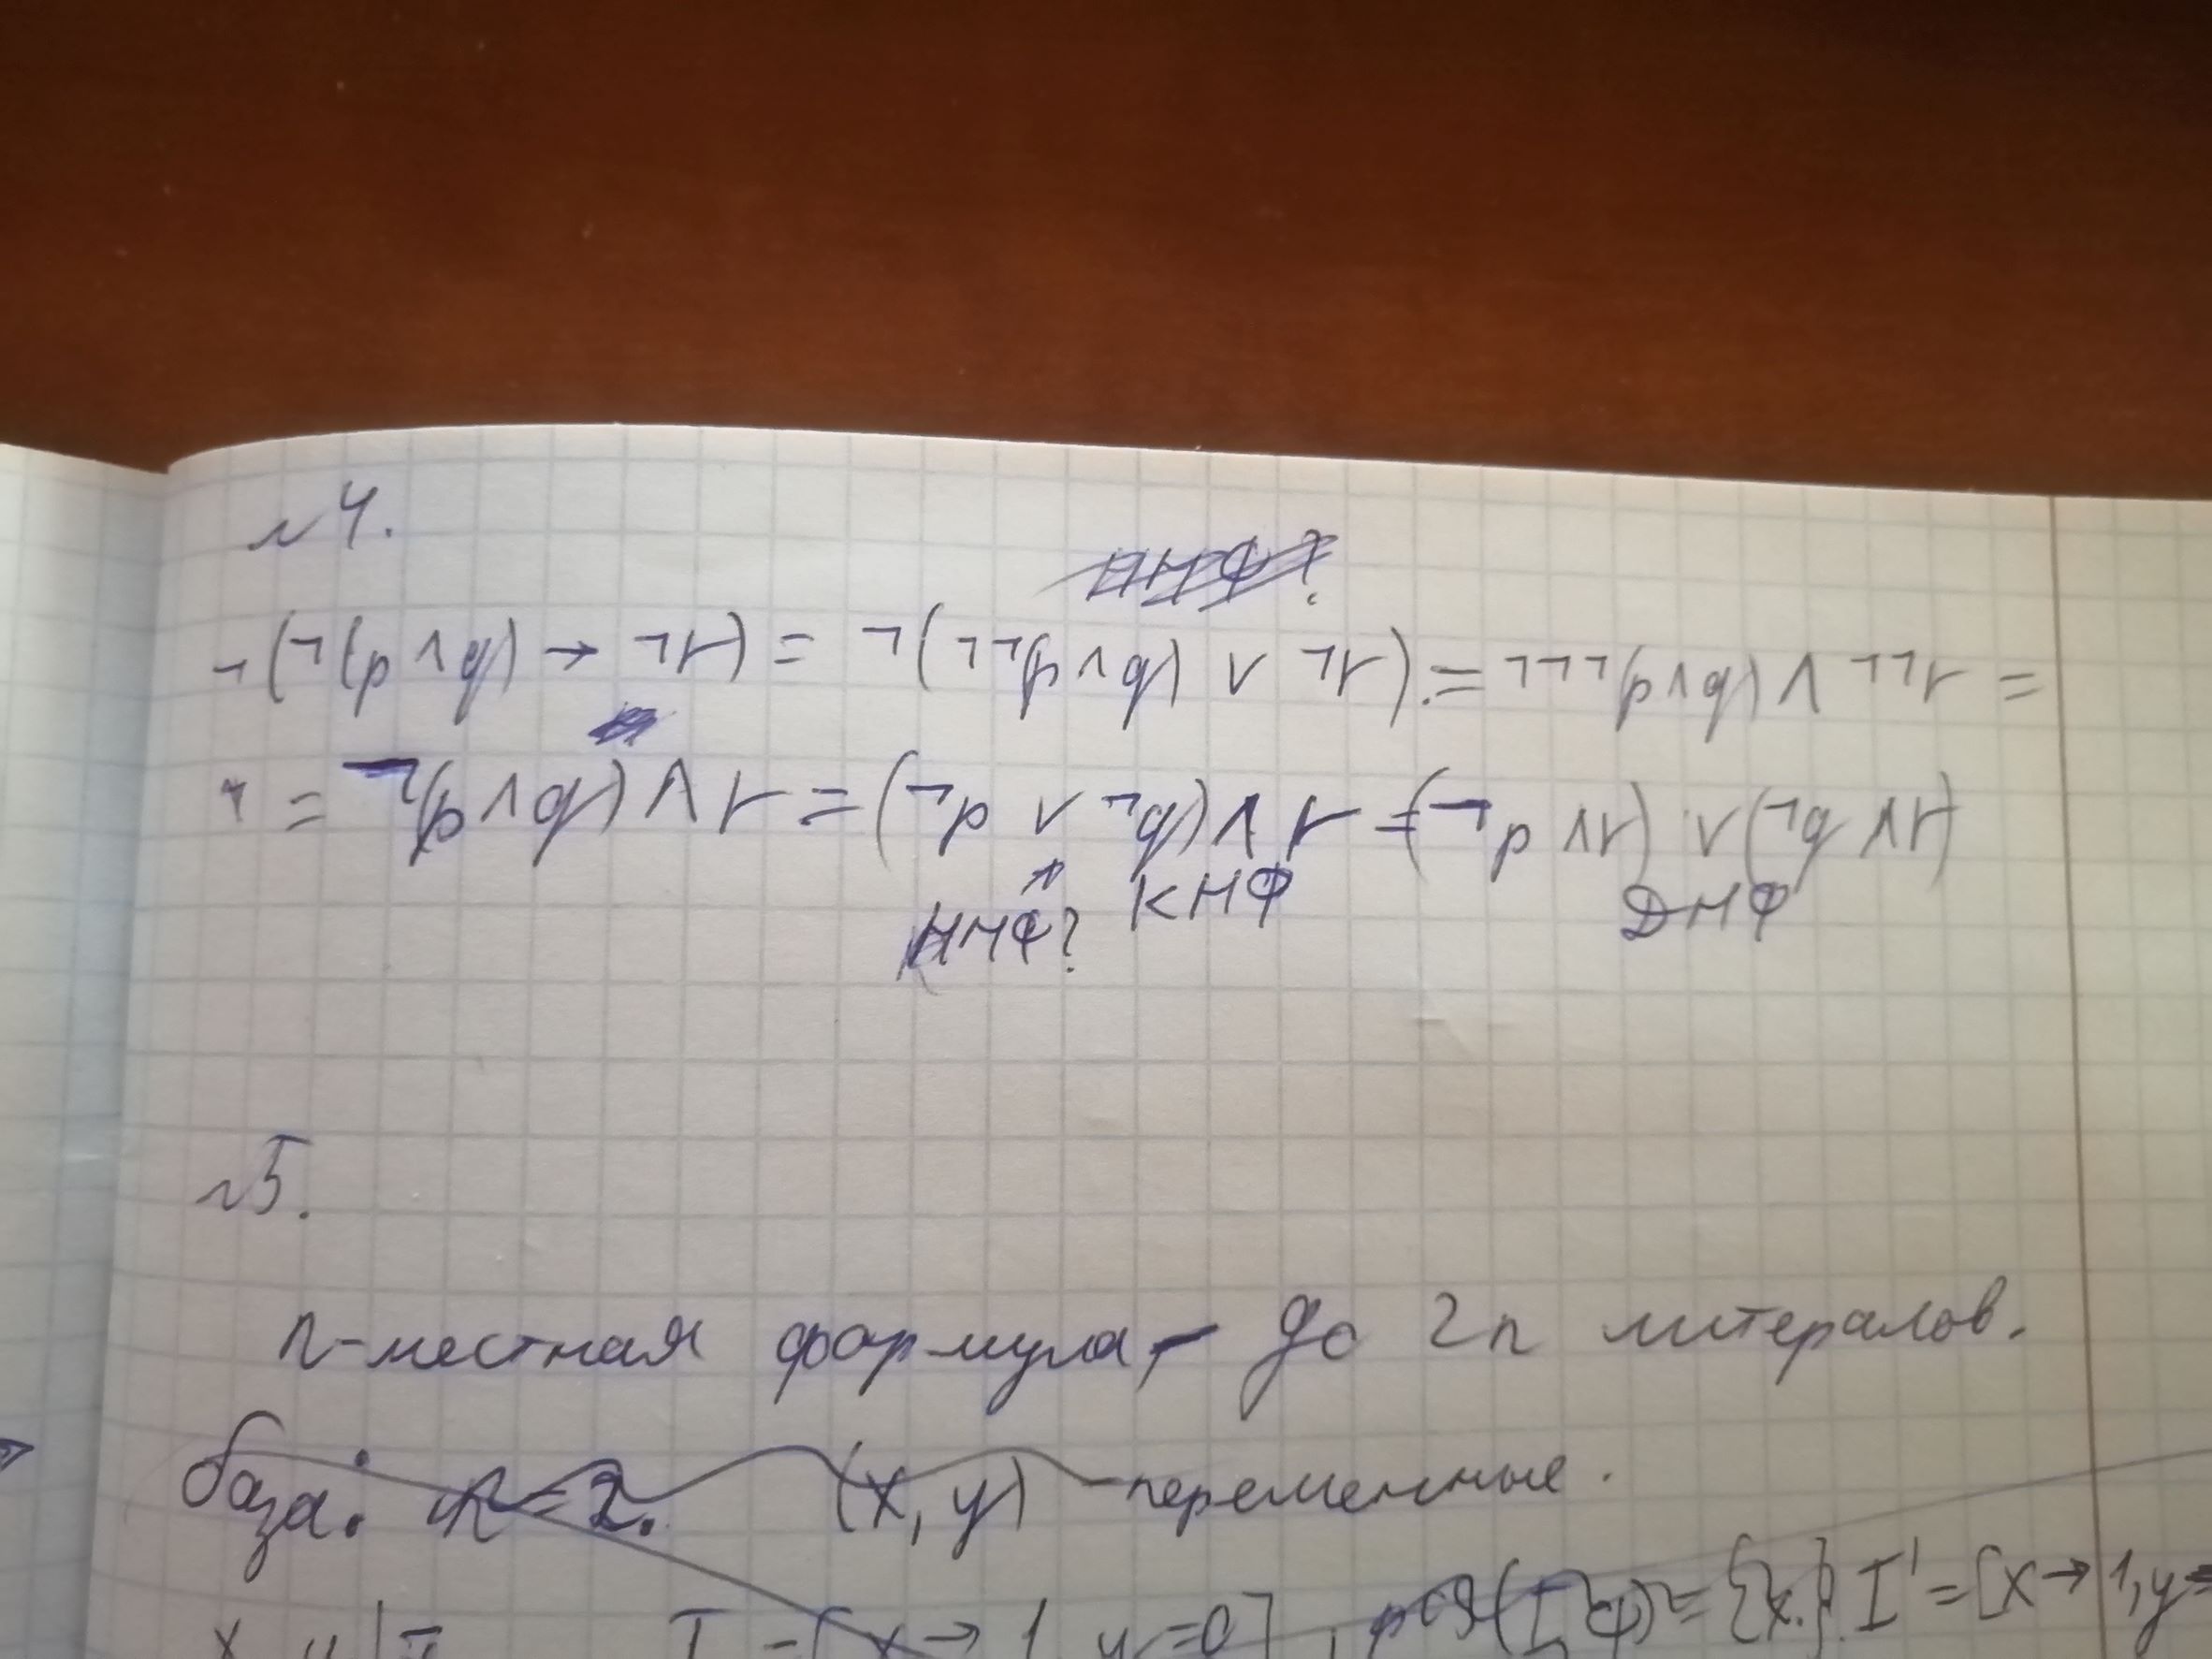 №4.
¬(¬(p∧q) → ¬r) = ¬(¬¬(p∧q) ∨ ¬r) = ¬¬¬(p∧q) ∧ ¬¬r =
= ¬(p∧q) ∧ r = (¬p ∨ ¬q) ∧ r = (¬p ∧ r) ∨ (¬q ∧ r)
ННФ? КНФ ДНФ
№5.
n-местная формула, - до 2n литералов.
база: n=2. (x, y) - переменные.
I = [x → 1, y = 0], pos(I, φ) = {x}. I' = [x → 1, y